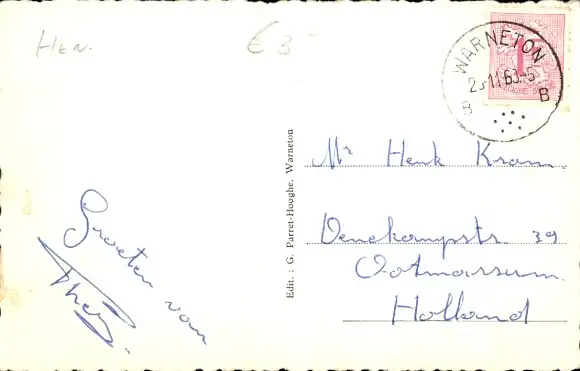 HEN.
€ 3
WARNETON
B B
1
Edit. : G. Parret-Hooghe. Warneton
Mr Henk Kram
Denekampstr. 39
Ootmarsum
Holland
Groeten van